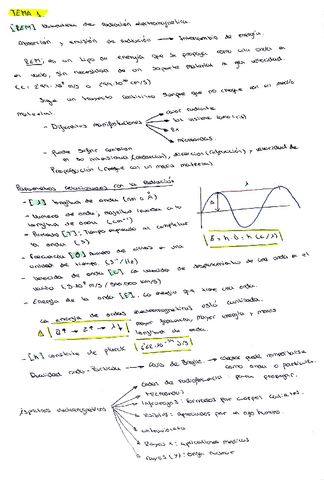 TEMA 1
[REM] Radiación electromagnética.
Absorción y emisión de radiación → Intercambio de energía
REM: es un tipo de energía que se propaga como una onda en
el vacío, sin necesidad de un soporte material a gran velocidad.
Sigue un trayecto rectilíneo siempre que no choque con un medio
material.
- Diferentes manifestaciones
calor radiante
luz visible
Rx
microondas.
- Puede sufrir cambios
en su intensidad, dirección (refracción) y velocidad de
Propagación (choque con un medio material)
Parámetros relacionados con la radiación
- [λ] longitud de onda (nm o Å)
- Número de onda, magnitud inversa a la
longitud de onda (cm⁻¹)
- Periodo [T]: Tiempo empleado en completar
la onda (s)
- Frecuencia número de ciclos en una
unidad de tiempo (s⁻¹/Hz)
- Velocidad de onda velocidad de desplazamiento de una onda en el
vacío
- Energía de la onda [E]. La energía que tiene cada onda.
La energía de ondas electromagnéticas está cuantizada.
mayor frecuencia, mayor energía y menos
longitud de onda.
λ
E = h·ν = h (c/λ)
- [h] constante de planck
Dualidad onda-partícula → Luis de Broglie. → puede comportarse
como onda o partícula.
Espectro electromagnético
ondas de radiofrecuencia
microondas
infrarrojos: formados por cuerpos calientes.
visibles: apreciados por el ojo humano.
ultravioleta
Rayos X: aplicaciones médicas
rayos (γ): origen nuclear